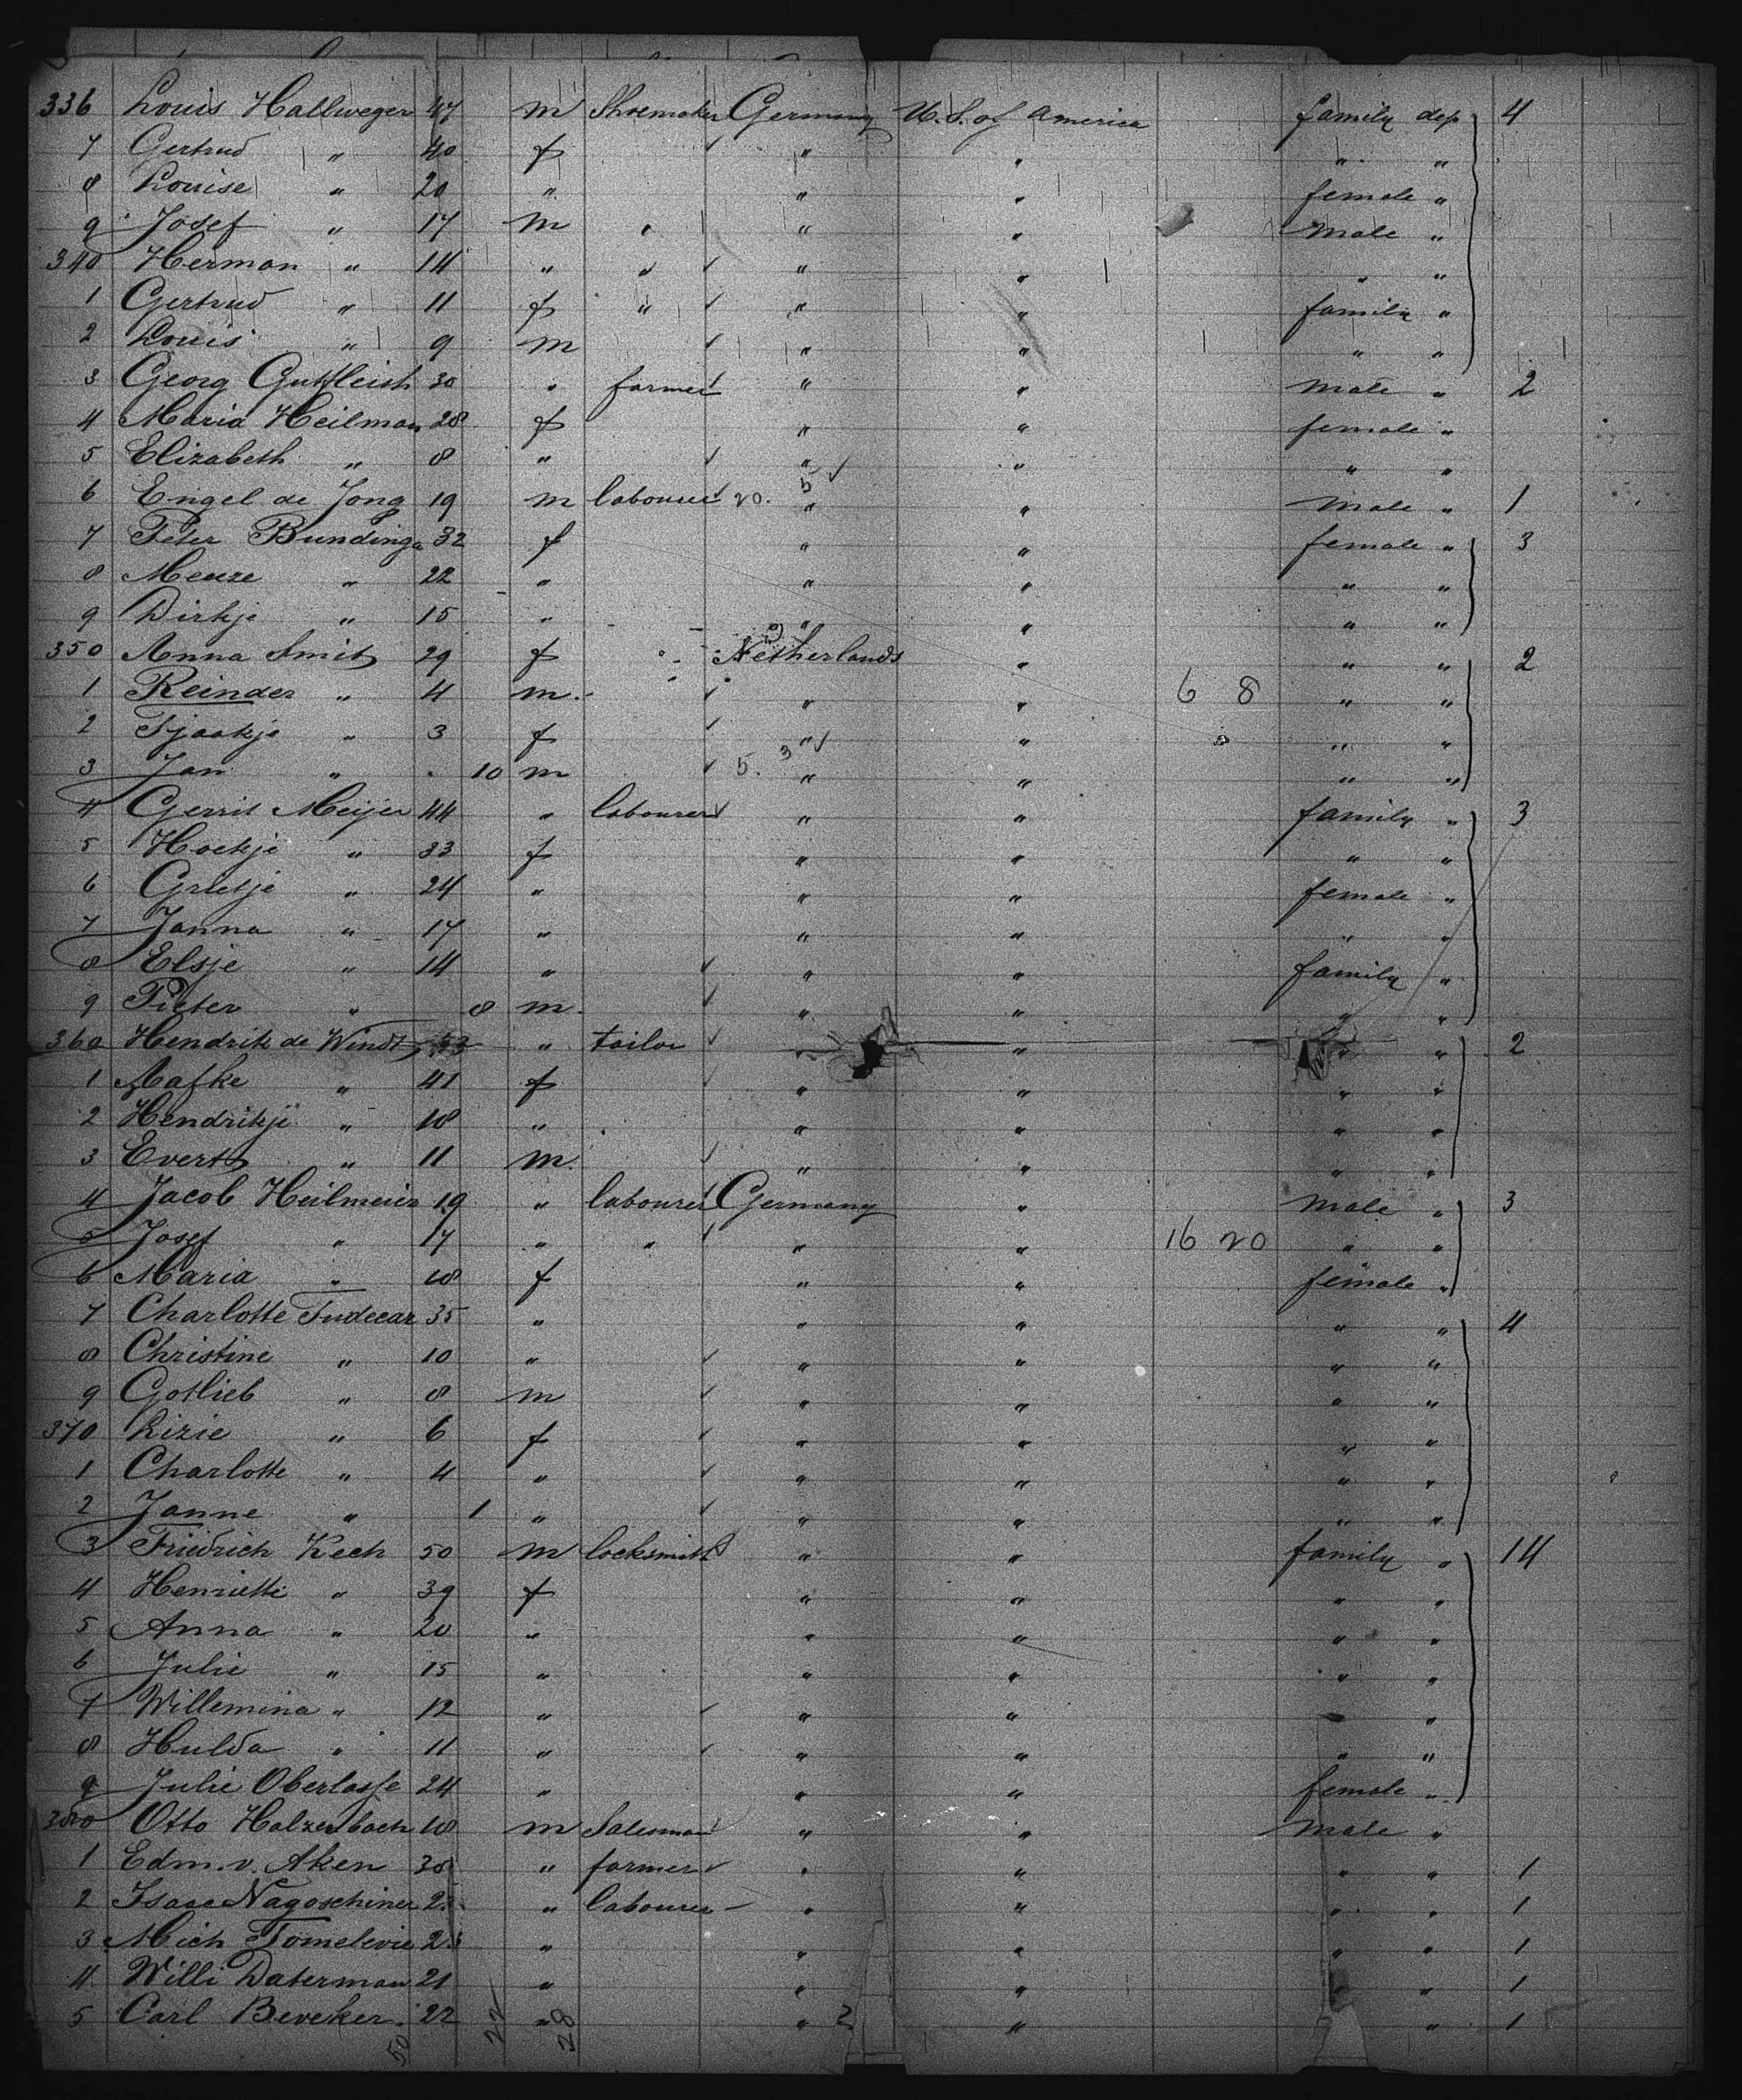 336 Louis Hallweger 47 m Shoemaker Germany U.S. of America family dep 4
7 Gertrud " 40 f " " " "
8 Louise " 20 " " " female "
9 Josef " 17 m " " " male "
340 Herman " 14 " " " " " "
1 Gertrud " 11 f " " " family "
2 Louis " 9 m " " " "
3 Georg Gutfleish 30 " farmer " " male " 2
4 Maria Heilman 28 f " " female "
5 Elizabeth " 8 " " " " "
6 Engel de Jong 19 m labourer 20. 5 " " male " 1
7 Peter Bundinga 32 f " " female " 3
8 Menze " 22 " " " " "
9 Dirkje " 15 " " " " "
350 Anna Smit 29 f Netherlands " " " 2
1 Reinder " 4 m. " " 6 8 " "
2 Tjaakje " 3 f " " " "
3 Jan " 10 m 5. 3 " " " "
4 Gerrit Meijer 44 " labourer " " family " 3
5 Hoekje " 33 f " " " "
6 Grietje " 24 " " " female "
7 Janna " 17 " " " " "
8 Elsje " 14 " " " family "
9 Pieter " 8 m. " " " "
360 Hendrik de Windt 53 " tailor " " " " 2
1 Aafke " 41 f " " " "
2 Hendrikje " 18 " " " " "
3 Evert " 11 m. " " " "
4 Jacob Heilmeier 19 " labourer Germany " male " 3
5 Josef " 17 " " " " 16 20 " "
6 Maria " 18 f " " female "
7 Charlotte Tudecar 35 " " " " " 4
8 Christine " 10 " " " " "
9 Gotlieb " 8 m " " " "
370 Lizie " 6 f " " " "
1 Charlotte " 4 " " " " "
2 Janne " 1 " " " " "
3 Friedrich Kech 50 m locksmith " " family " 14
4 Henriette " 39 f " " " "
5 Anna " 20 " " " " "
6 Julie " 15 " " " " "
7 Willemina " 12 " " " "
8 Hulda " 11 " " " " "
9 Julie Oberlasse 24 " " " female "
380 Otto Holzenbach 18 m Salesman " " male "
1 Edm. v. Aken 38 " farmer " " " " 1
2 Isaac Nagoschiner " labourer " " " " 1
3 Mich Tomelevie 23 " " " " " 1
4 Willi Daterman 21 " " " " 1
5 Carl Beveker 22 " " 2 " " 1
50 22 28